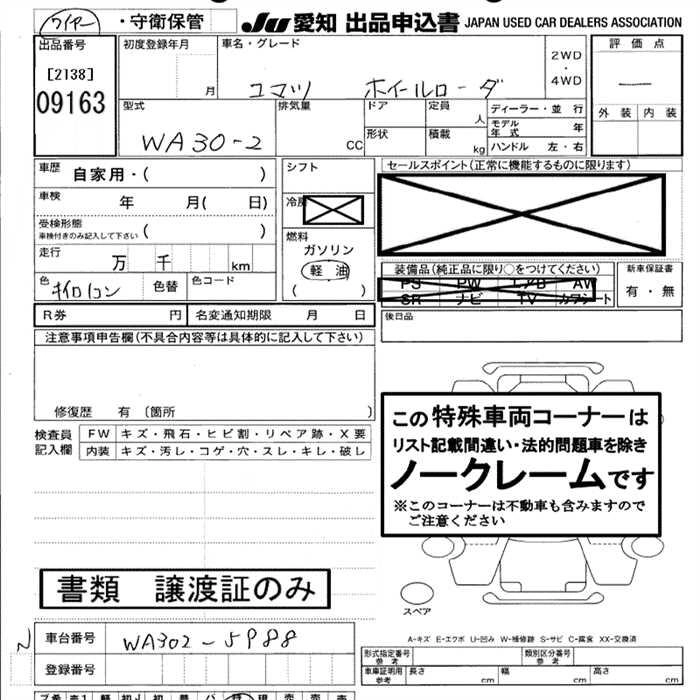 ワイヤー ・守衛保管 JU 愛知 出品申込書 JAPAN USED CAR DEALERS ASSOCIATION
出品番号 初度登録年月 車名・グレード 2WD ・ 4WD 評価点
[2138] 月 コマツ ホイールローダ ー
09163 型式 排気量 ドア 定員 人 ディーラー・並 行 外装 内装
WA30-2 CC 形状 積載 kg モデル年式 年
ハンドル 左・右
車歴 自家用・( ) シフト セールスポイント(正常に機能するものに限ります)
車検 年 月( 日) 冷房
受検形態 ( ) 燃料
車検付きのみ記入して下さい
走行 万 千 km ガソリン 装備品(純正品に限り○をつけてください) 新車保証書
色 色替 色コード 軽油 PS PW AW 有・無
( ) SR ナビ TV カワシート
R券 円 名変通知期限 月 日 後日品
注意事項申告欄(不具合内容等は具体的に記入して下さい)
修復歴 有 〔箇所 〕
検査員 FW キズ・飛石・ヒビ割・リペア跡・X要
記入欄 内装 キズ・汚レ・コゲ・穴・スレ・キレ・破レ
この特殊車両コーナーは
リスト記載間違い・法的問題車を除き
ノークレームです
※このコーナーは不動車も含みますので
ご注意ください
書類 譲渡証のみ
スペア
A-キズ E-エクボ U-凹み W-補修跡 S-サビ C-腐食 XX-交換済
車台番号 WA302-5988
登録番号
形式指定番号 参考 類別区分番号 参考
車庫証明用 参考 長さ cm 幅 cm 高さ cm